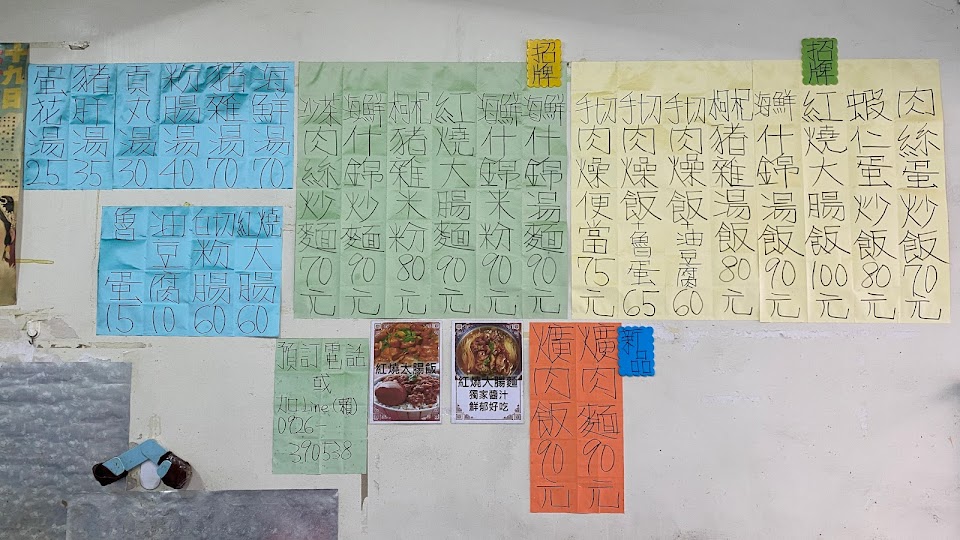 招牌
肉絲蛋炒飯70元
蝦仁蛋炒飯80元
紅燒大腸飯100元
海鮮什錦湯飯90元
枸杞豬雜湯飯80元
手切肉燥飯+油豆腐60
手切肉燥飯+魯蛋65
手切肉燥便當75元
招牌
海鮮什錦湯麵90元
海鮮什錦米粉90元
紅燒大腸麵90元
枸杞豬雜米粉80元
海鮮什錦炒麵90元
沙茶肉絲炒麵70元
海鮮湯70
豬雜湯70
粉腸湯40
貢丸湯30
豬肝湯35
蛋花湯25
紅燒大腸60
白切粉腸60
油豆腐10
魯蛋15
新品
爌肉麵90元
爌肉飯90元
紅燒大腸麵
獨家醬汁
鮮郁好吃
紅燒大腸飯
預訂電話
或
加line(賴)
0926-
390538
十九日